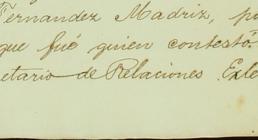 Fernandez Madriz, po
que fué quien contestó
etario de Relaciones Exte